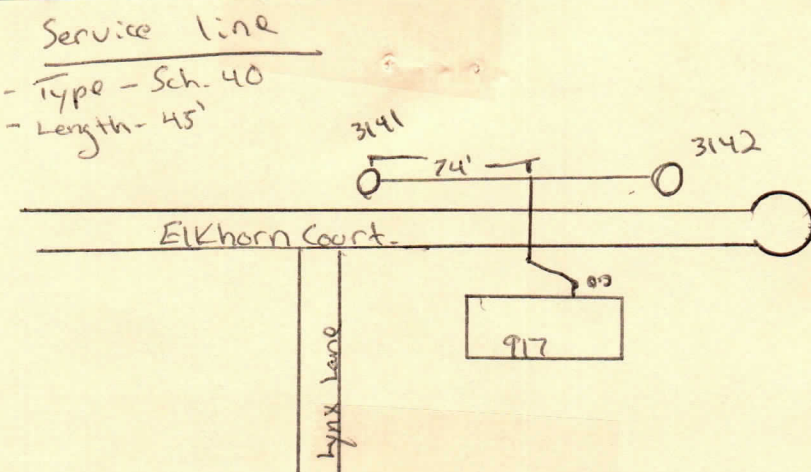 Service line
- Type - Sch. 40
- Length - 45'
3141
3142
74'
Elkhorn Court.
917
Lynx Lane